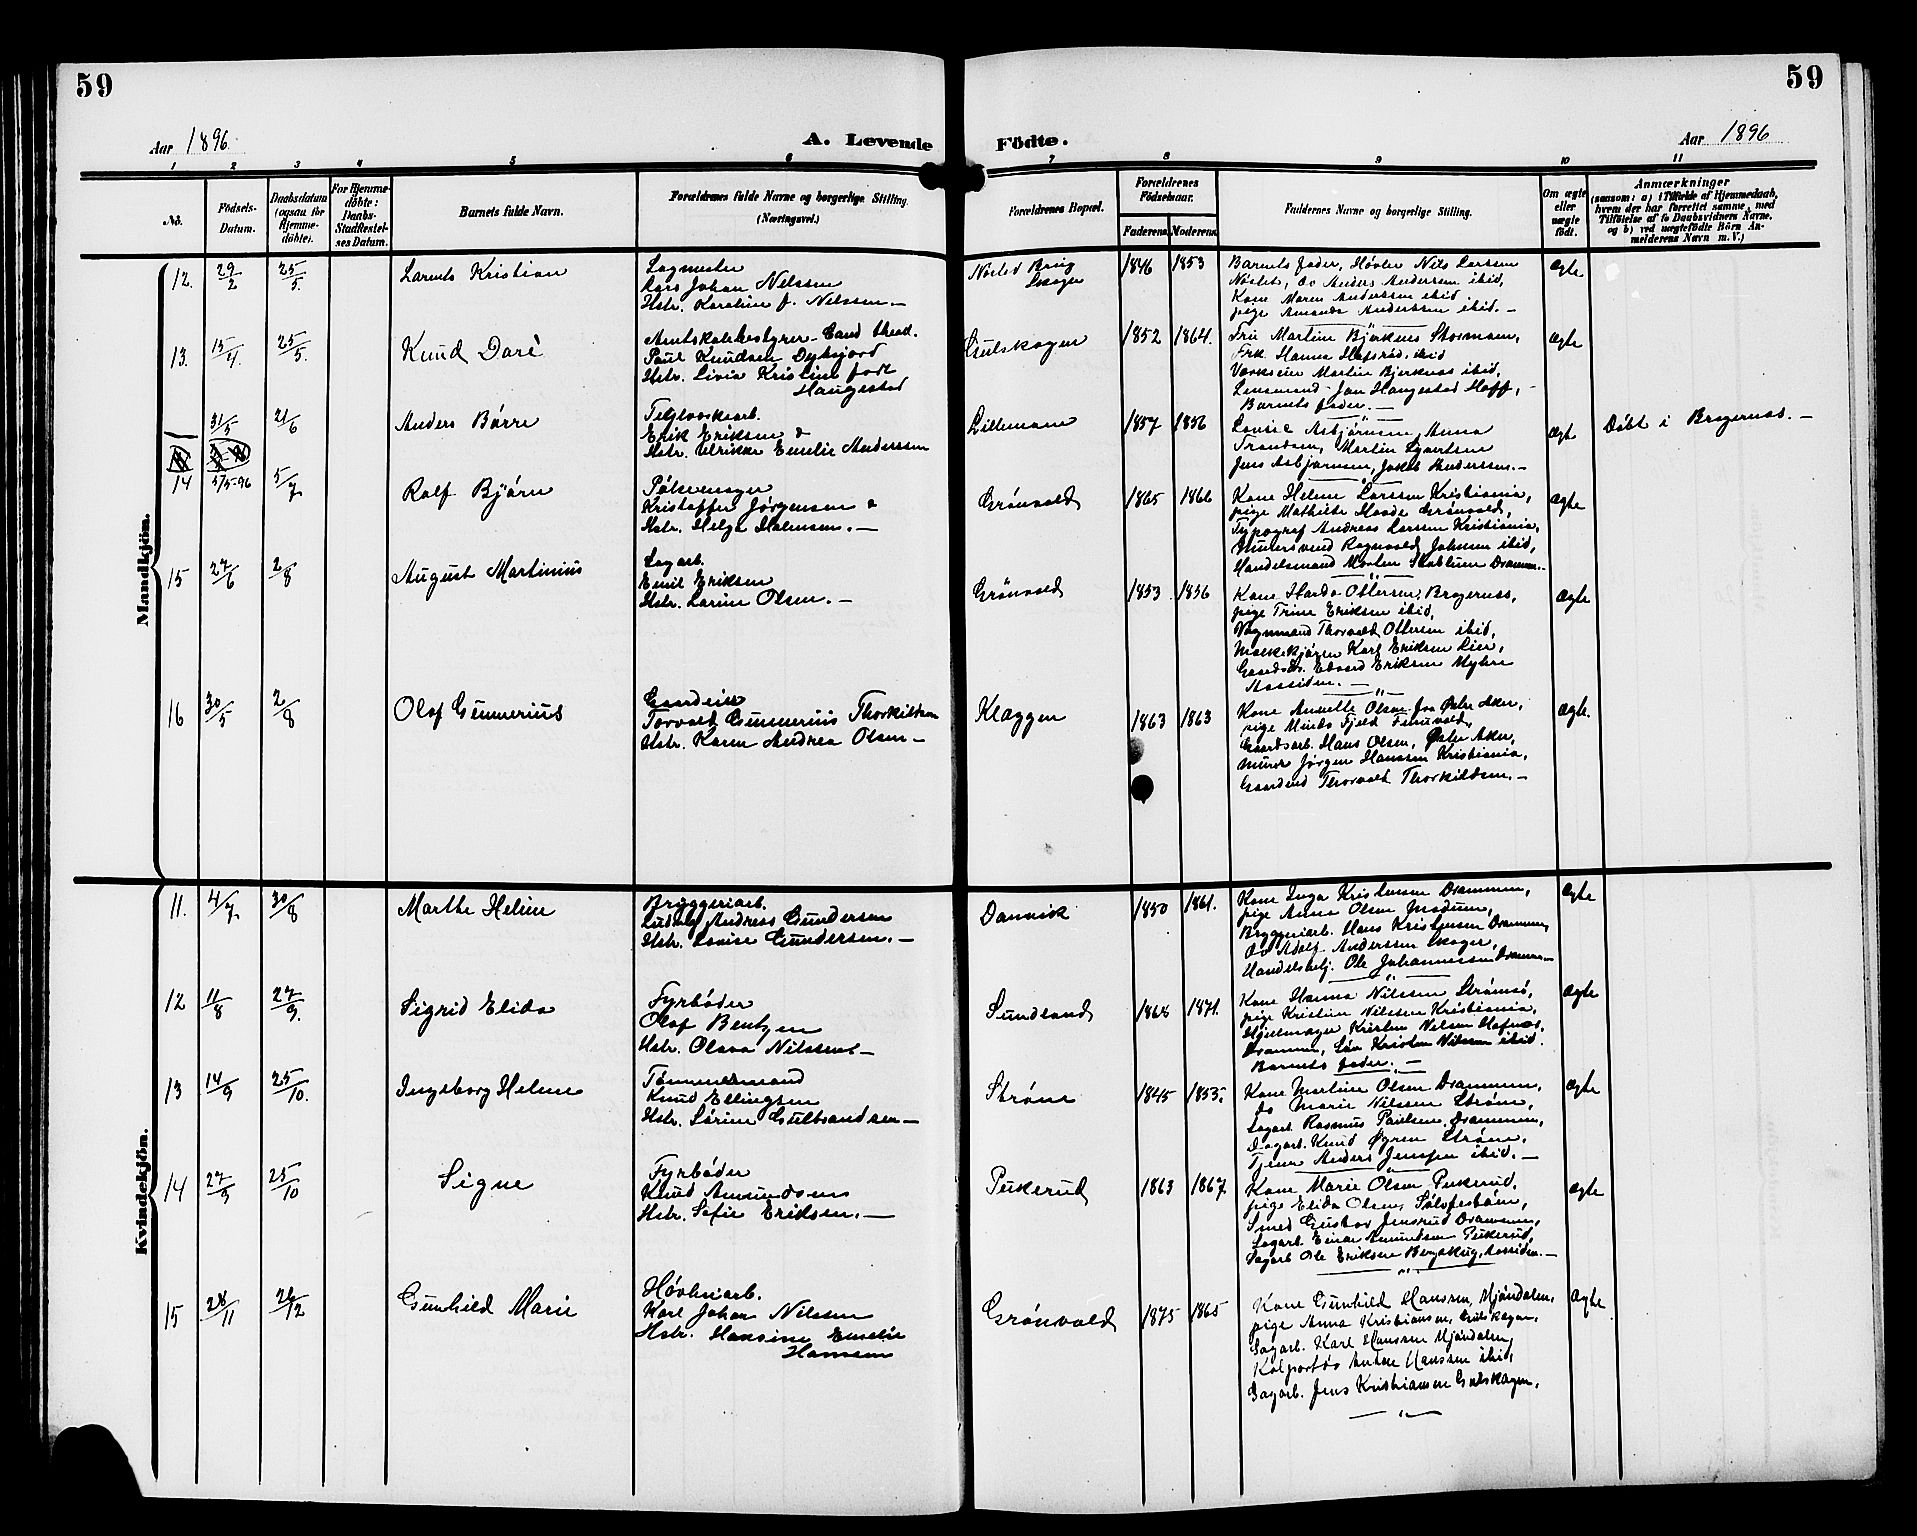 59
59
Aar 1896.
A. Levende
Födte.
Aar 1896
1 2 3 4 5 6 7 8 9 10 11
No.
Födsels-Datum.
Daabsdatum (ogsaa for Hjemmedöbte).
For Hjemmedöbte: Daabs-Stadfæstelses Datum.
Barnets fulde Navn.
Forældrenes fulde Navne og borgerlige Stilling. (Næringsvei.)
Forældrenes Bopæl.
Forældrenes Födselsaar.
Faderens. Moderens.
Faddernes Navne og borgerlige Stilling.
Om ægte eller uægte födt.
Anmærkninger
(saasom: a) i Tilfælde af Hjemmedaab, hvem der har forrettet samme, med Tilföielse af to Daabsvidners Navne, og b) ved uægtefödte Börn Anmelderens Navn m. V.)
Mandkjön.
12. 29/2 25/5. Laurits Kristian
Sagmester
Lars Johan Nilssen
Hstr. Karoline f. Nilssen. —
Nøsted Brug
Skoger
1846 1853
Barnets fader, Høvler Nils Larssen
Nøsted, do Anders Anderssen ibid,
Kone Maren Anderssen ibid.
pige Amanda Anderssen ibid. —
Ægte
13. 15/4. 25/5. Knud Daré
Amtsskolebestyrer. Cand. theol.
Paul Knudsen Dyksjord
Hstr. Livia Kristine født
Haugestad
Gulskogen
1852 1864.
Fru Martine Bjerknes Stormoen,
Frk. Hanna Hofsrød, ibid
Værkseier Martin Bjerknes ibid,
Lensmand Jan Haugestad Hoff, -
Barnets fader. —
Ægte
31/5 21/6 Anders Børre
Teglværksarb.
Erik Eriksen &
Hstr. Ulrikke Emelie Anderssen
Lillemoen
1857 1856
Louise Asbjørnsen, Anna
Trondsen, Martin Syvertsen
Jens Asbjørnsen, Jakob Anderssen. —
Ægte
Døbt i Bragernæs. —
14 5/5-96 5/7 Rolf Bjørn
Pølsemager
Kristoffer Jørgensen &
Hstr. Helga Halvorsen. —
Grønvold
1865 1866
Kone Helene Larssen Kristiania,
pige Mathilte Haade Grønvold,
Typograf Andreas Larssen Kristiania,
Murersvend Ragnvald Johnsen ibid,
Handelsmand Morten Stablum Dramm. -
Ægte
15 27/6 2/8 August Martinius
Sagarb.
Emil Eriksen
Hstr. Larine Olsen. —
Grønvold
1853 1856
Kone Harda Ottersen, Bragernæs,
pige Trine Eriksen ibid,
Vognmand Thorvald Ottersen ibid,
Melkekjører Karl Eriksen Lier,
Gaardbr. Edvard Eriksen Myhre
Aassiden. —
Ægte
16 30/5 2/8 Olaf Gunnerius
Gaardeier
Torvald Gunnerius Thorkildsen
Hstr. Karen Andrea Olsen —
Kløggen
1863 1863
Kone Annette Olsen fra Østre Aker,
pige Minda Fjeld Finnvold,
Gaardsarb. Hans Olsen, Østre Aker,
Murer Jørgen Hanssen Kristiania,
Gaardmd Thorvald Thorkildsen. —
Ægte.
Kvindekjön.
11. 4/7. 30/8 Marthe Heline
Bryggeriarb.
Ludolf Andreas Gundersen
Hstr. Lovise Gundersen. —
Danvik
1850 1861.
Kone Inga Kristensen Drammen,
pige Anna Olsen Modum,
Bryggeriarb. Hans Kristensen Drammen,
do Adolf Anderssen Skoger,
Handelsbetj. Ole Johannessen Dramm —
Ægte
12 11/8 27/9. Sigrid Elida
Fyrbøder
Olaf Bentzen
Hstr. Olava Nilssen —
Sundland
1868 1871.
Kone Hanna Nilssen Strømsø,
pige Kristine Nilssen Kristiania,
Hjulmager Kristen Nilsen Hofnæs,
Drammen, Søn Kristen Nilssen ibid.
Barnets fader. —
Ægte
13 14/9 25/10. Ingeborg Helene
Tømmermand
Knud Ellingsen
Hstr. Sørine Gulbrandsen —
Strøme
1845 1853.
Kone Martine Olsen Drammen,
do Marie Nilssen Strøme,
Sagarb. Rasmus Paulsen, Drammen,
Dagarb. Knud Øgren Strøme,
Tjener Anders Jenssen ibid. —
Ægte
14 27/9 25/10 Signe
Fyrbøder
Knud Amundsen
Hstr. Sofie Eriksen. —
Pukerud
1863 1867
Kone Marie Olsen Pukerud,
pige Elida Olsen, Sølvfestøen,
Smed Gustav Jensrud Drammen,
Sagarb. Einar Amundsen Pukerud,
Sagarb Ole Eriksen Bergskug, Aassiden. —
Ægte
15 28/11 26/12 Gunhild Marie
Høvleriarb.
Karl Johan Nilssen
Hstr. Hansine Emelie
Hanssen
Grønvold
1875 1865
Kone Gunhild Hanssen, Mjøndalen,
pige Anna Kristiansen, Gulskogen,
Sagarb. Karl Hanssen Mjøndalen,
Kolportør Anton Hanssen ibid,
Sagarb. Jens Kristiansen Gulskogen,
Ægte